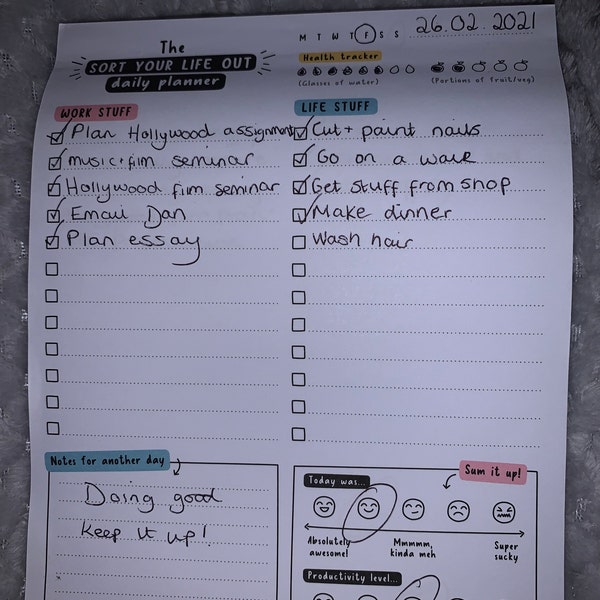 The
SORT YOUR LIFE OUT
daily planner
M T W T F S S 26.02.2021
Health tracker
(Glasses of water) (Portions of fruit/veg)
WORK STUFF
Plan Hollywood assignment
music+film seminar
Hollywood film seminar
Email Dan
Plan essay
LIFE STUFF
Cut + paint nails
Go on a walk
Get stuff from shop
Make dinner
Wash hair
Notes for another day
Doing good
Keep it up!
Sum it up!
Today was...
Absolutely awesome! Mmmmm, kinda meh Super sucky
Productivity level...